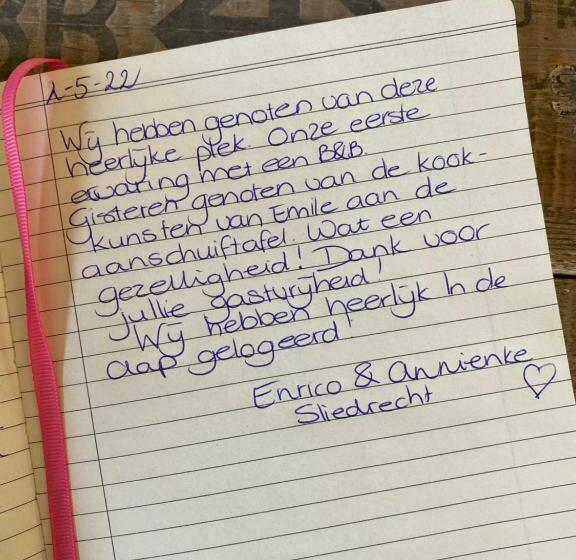 1-5-22
Wij hebben genoten van deze
heerlijke plek. Onze eerste
ewaring met een B&B.
Gisteren genoten van de kook-
kunsten van Emile aan de
aanschuiftafel. Wat een
gezelligheid! Dank voor
jullie gastvrijheid!
Wij hebben heerlijk in de
aap gelogeerd!
Enrico & Annienke
Sliedrecht